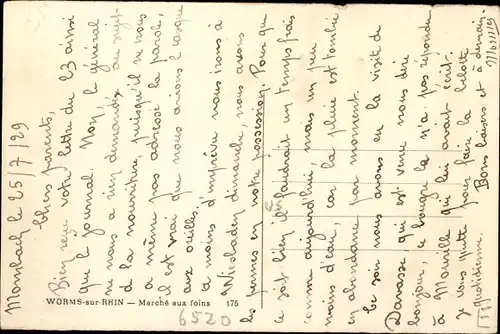 Mombach le 25/7/29
Chers parents,
Bien reçu votre lettre du 23 ainsi
que le journal. Non, le général
ne nous a rien demandé, au sujet
d la nourriture puisqu'il ne nous
a même pas adressé la parole,
il est vrai que nous avions l casque
aux oreilles.
à moins d'imprévu nous irons à
Wiesbaden dimanche, nous avons
les permes en notre possession. Pour que
ce soit bien il faudrait un temps frais
comme aujourd'hui, mais un peu
moins d'eau, car la pluie est tombée
en abondance par moment.
Ce soir nous avons eu la visite de
Darasse qui est venu nous dire
bonjour, le bougre il n'a pas répondu
à Marcelle qui lui avait écrit.
Je vous quitte pour faire la belote
quotidienne.
Bons baisers et à demain.
WORMS-sur-RHIN — Marché aux foins 175
6520